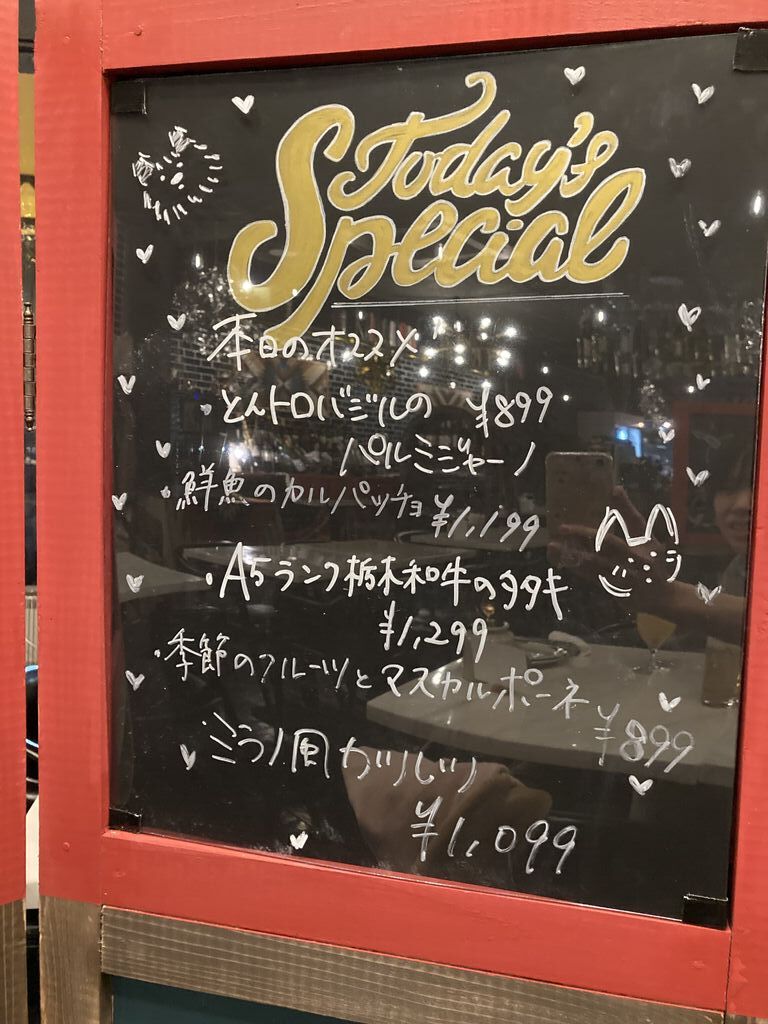 Today's
Special
本日のオススメ
・とんトロバジルの ¥899
パルミジャーノ
・鮮魚のカルパッチョ ¥1,199
・A5ランク栃木和牛のタタキ
¥1,299
・季節のフルーツとマスカルポーネ ¥899
ミラノ風カツレツ
¥1,099